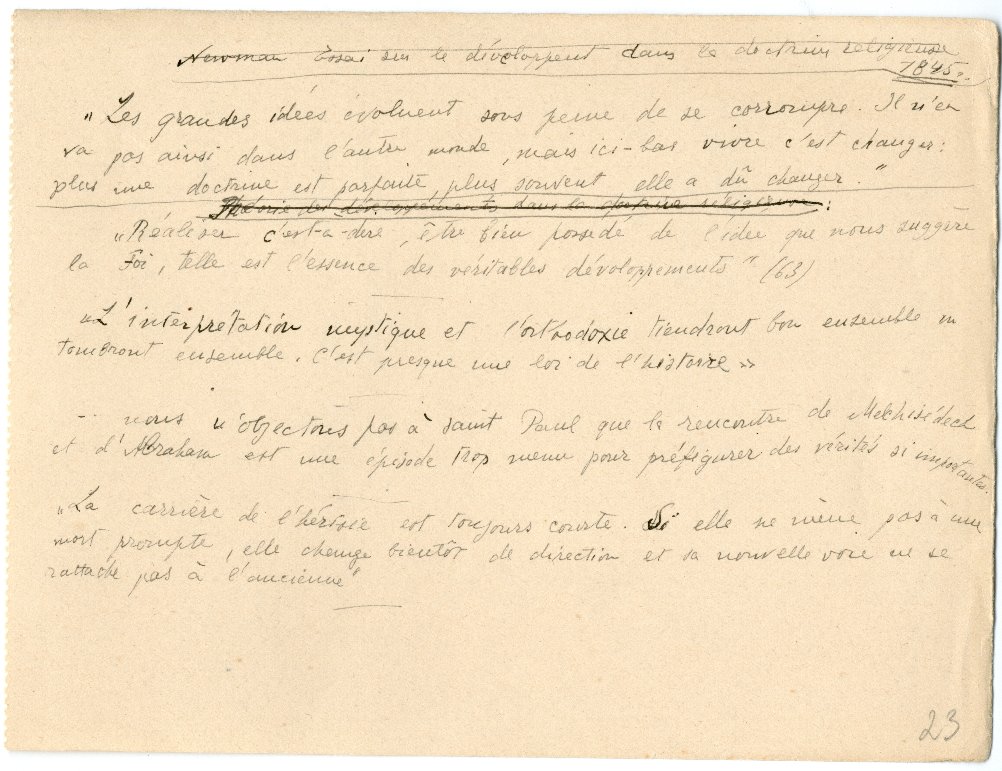 Newman Essai sur le dévoloppent dans la doctrine religieuse
1845.
"Les grandes idées évoluent sous peine de se corrompre. Il n'en
va pas ainsi dans l'autre monde, mais ici-bas vivre c'est changer:
plus une doctrine est parfaite, plus souvent, elle a dû changer."
Théorie des développements dans la doctrine religieuse:
"Réaliser c'est-à-dire, être bien possédé de l'idée que nous suggère
la Foi, telle est l'essence des véritables dévoloppements" (63)
"L'interprétation mystique et l'orthodoxie tiendront bon ensemble ou
tombront ensemble. C'est presque une loi de l'histoire»
.. nous n'objectons pas à saint Paul que la rencontre de Melchisédech
et d'Abraham est une épisode trop menu pour préfigurer des vérités si importantes.
"La carrière de l'hérésie est toujours courte. Si elle ne mène pas à une
mort prompte, elle change bientôt de direction et sa nouvelle voie ne se
rattache pas à l'ancienne"
23